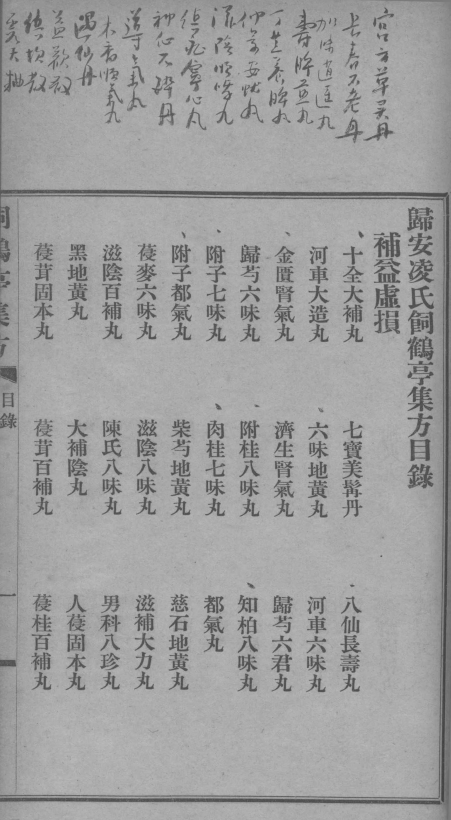 宮方萃灵丹
長春不老丹
加味逍遙丸
壽脾益丸
丁蔻養脾丸
滋陰
寧心丸
神仙不醉丹
導氣丸
木香順氣丸
遇仙丹
益歡散
歸安凌氏飼鶴亭集方目錄
補益虛損
十全大補丸　七寶美髯丹　八仙長壽丸
河車大造丸　六味地黃丸　河車六味丸
金匱腎氣丸　濟生腎氣丸　歸芍六君丸
歸芍六味丸　附桂八味丸　知柏八味丸
附子七味丸　肉桂七味丸　都氣丸
附子都氣丸　柴芍地黃丸　慈石地黃丸
蓡麥六味丸　滋陰八味丸　滋補大力丸
滋陰百補丸　陳氏八味丸　男科八珍丸
黑地黃丸　大補陰丸　人蓡固本丸
蓡茸固本丸　蓡茸百補丸　蓡桂百補丸
飼鶴亭集方　目錄　一